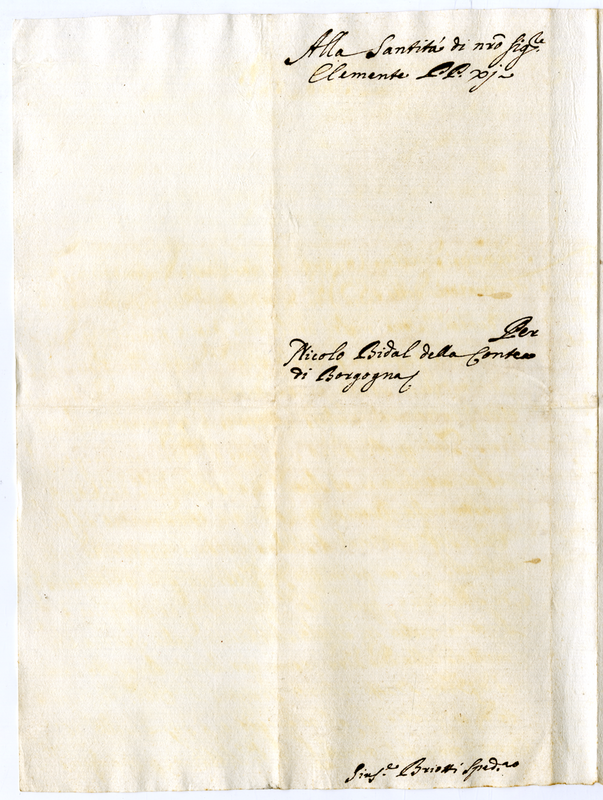 Alla Santità di nrõ Sig.re
Clemente P.P. xj
Per
Nicolo Bidal della Contea
di Borgogna
Gius.e Briotti Sped.ro